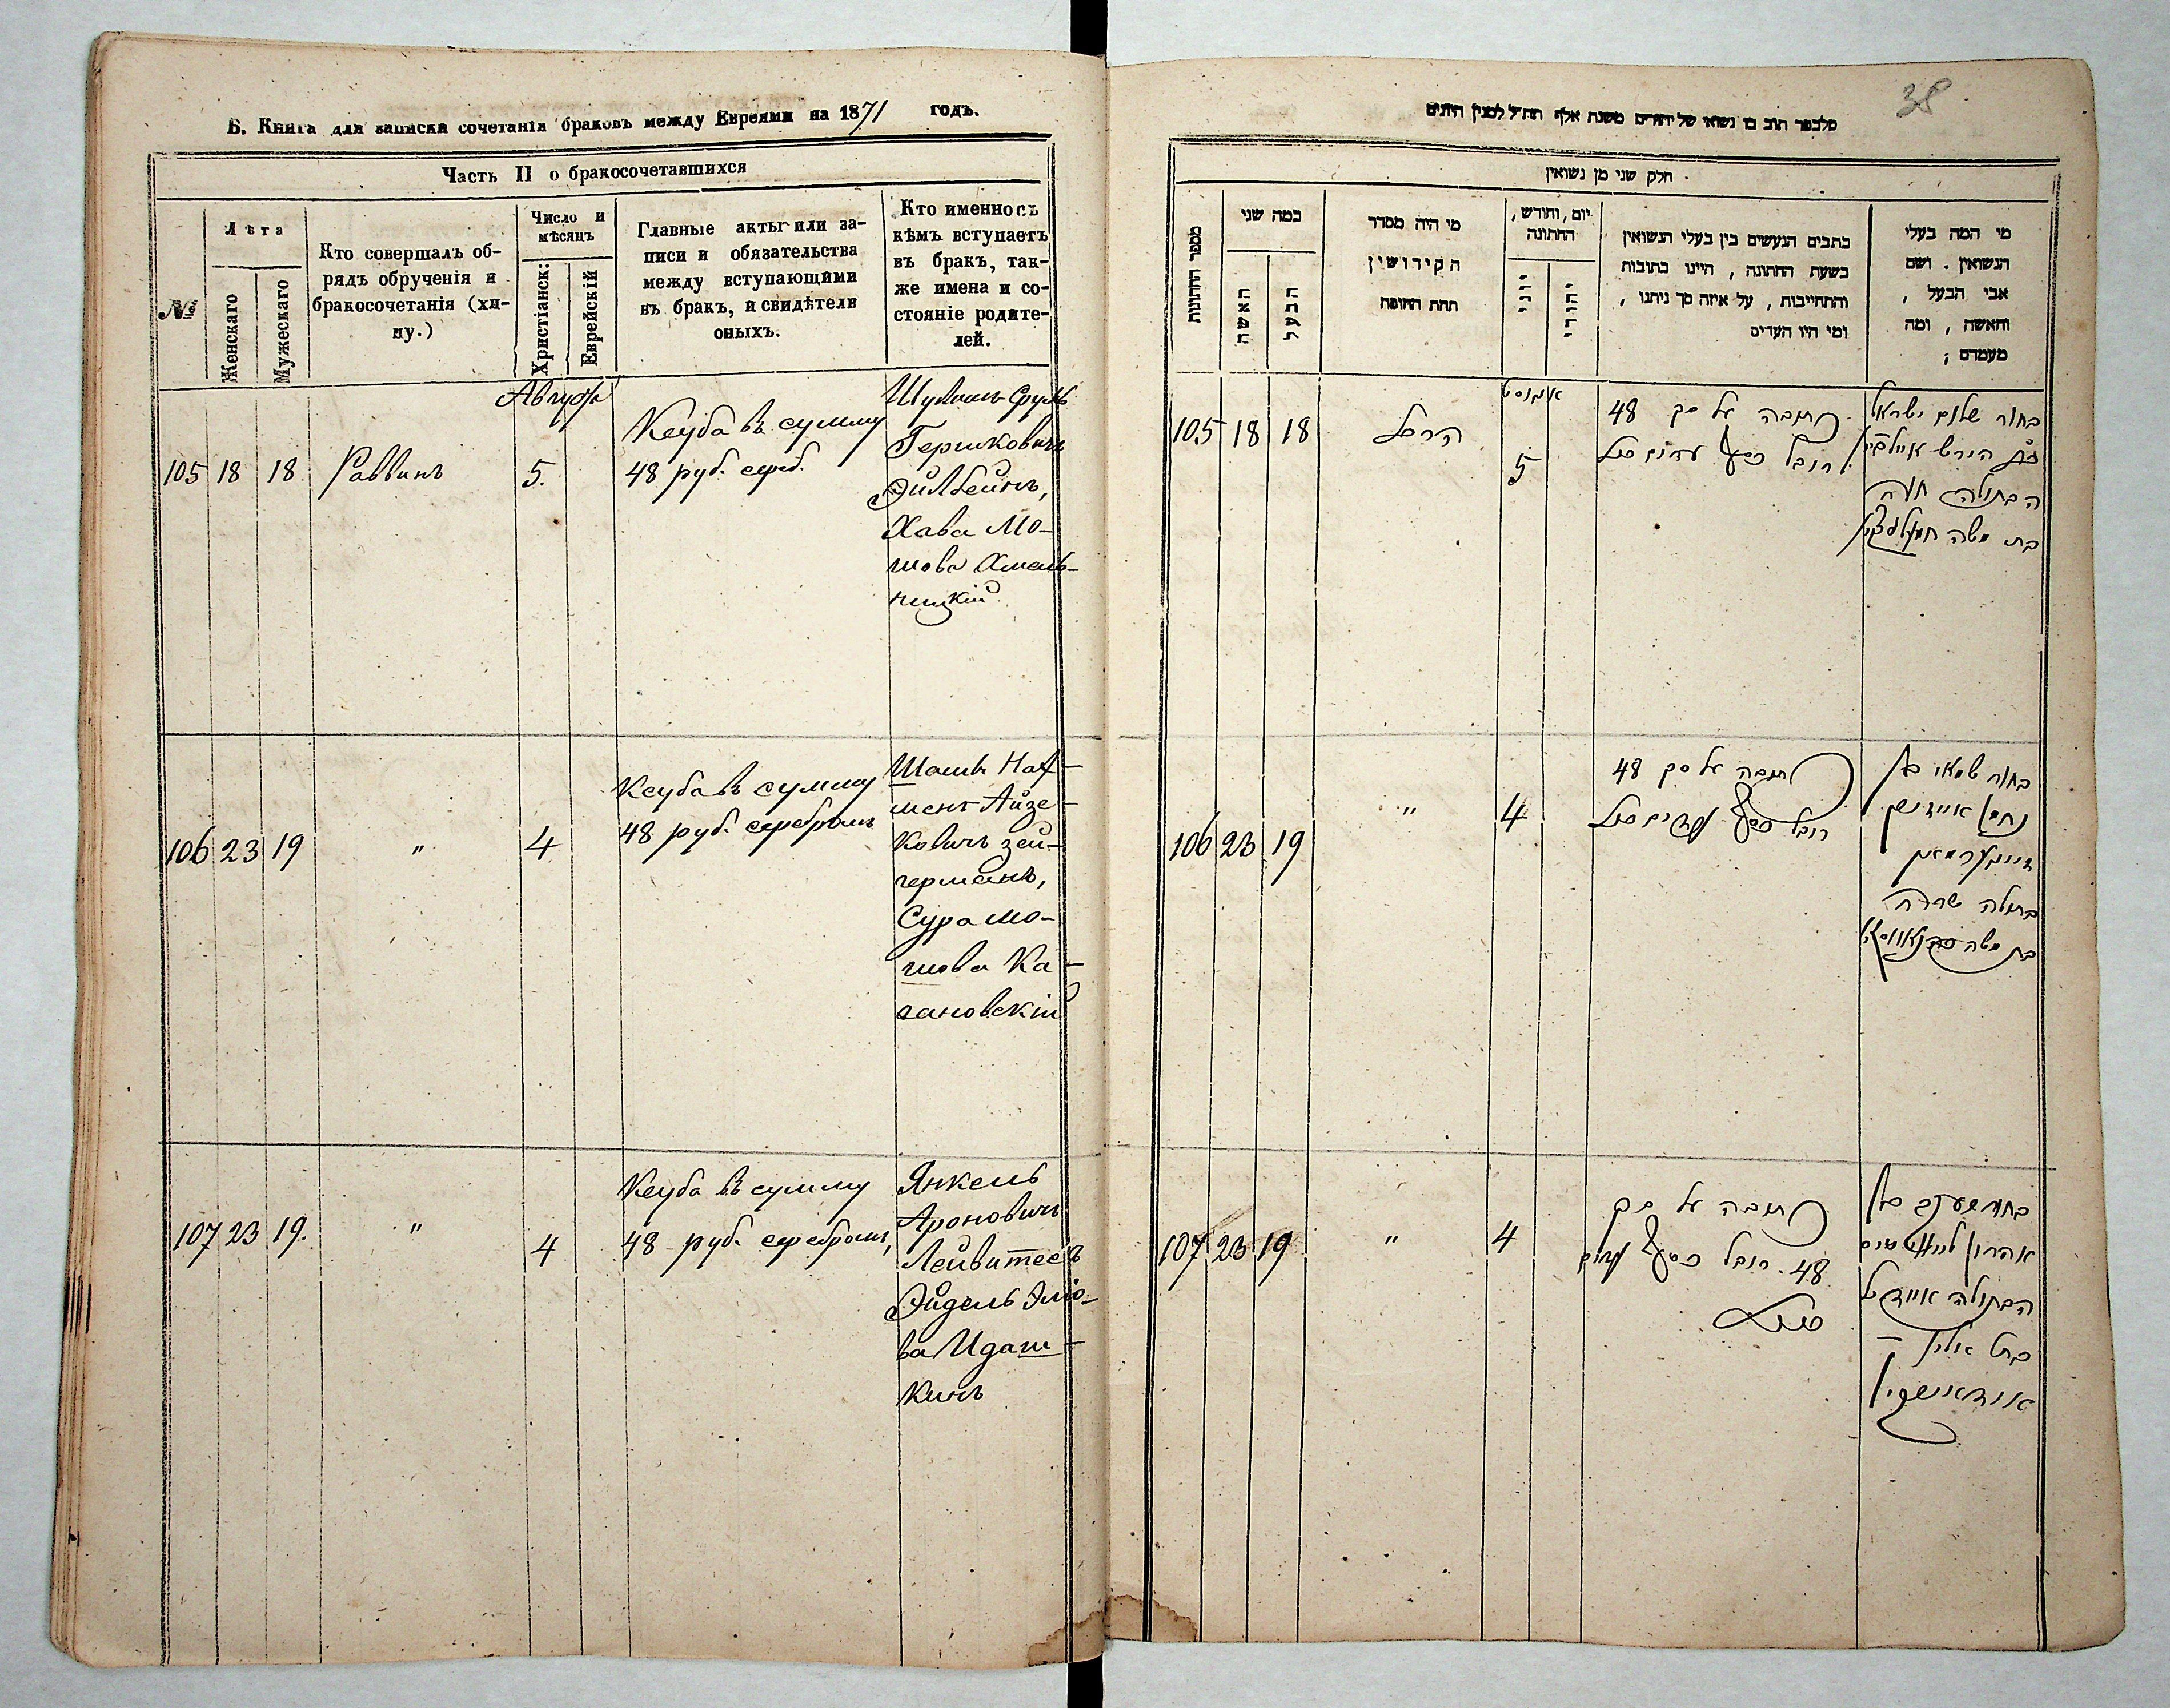 Б. Книга для записки сочетанія браковъ между Евреями на 1871 годъ.
Часть II о бракосочетавшихся
№
Лѣта
Женскаго
Мужескаго
Кто совершалъ об-
рядъ обрученія и
бракосочетанія (хи-
пу.)
Число и
мѣсяцъ
Христіанск:
Еврейскій
Главные акты или за-
писи и обязательства
между вступающими
въ бракъ, и свидѣтели
оныхъ.
Кто именно съ
кѣмъ вступаетъ
въ бракъ, так-
же имена и со-
стояніе родите-
лей.
Августа
105 18 18 Раввинъ 5.
Кеуба въ сумму
48 руб. сереб.
Шулимъ Сруль
Гершковичъ
Эйлбейнъ,
Хава Мо-
шова Хмель-
ницкій
106 23 19 " 4
Кеуба въ сумму
48 руб. серебромъ
Шам Нах-
менъ Айзе-
ковичъ Зей-
германъ,
Сура Мо-
шова Ка-
гановскій
107 23 19. " 4
Кеуба въ сумму
48 руб. серебромъ,
Янкель
Ароновичъ
Лейвитесъ
Эйдель Эліо-
ва Идаш-
кинъ
38
חלק שני מן נשואין
מספר החתונות
כמה שני
האשה
הבעל
מי היה מסדר
הקידושין
תחת החופה
יום, וחודש,
החתונה
יוני
יהודי
כתבים הנעשים בין בעלי הנשואין
בשעת החתונה, היינו כתובות
והתחייבות, על איזה סך ניתנו,
ומי היו העדים
מי המה בעלי
הנשואין. ושם
אבי הבעל,
והאשה, ומה
מעמדם;
אוגוסט
105 18 18 הרב 5
כתובה על סך 48
רובל כסף
בחור שלום ישראל
בן הירש אײלבײן
הבתולה חוה
בת משה חמעלניצקי
106 23 19 " 4
כתובה על סך 48
רובל כסף
בחור שמאי בן
נחמן אייזיק
זייגערמאן
בתולה שרה
בת משה
107 23 19 " 4
כתובה על סך
48. רובל כסף
בחור יעקב בן
אהרון לייוויטעס
הבתולה איידיל
בת אליו
אידאשקין